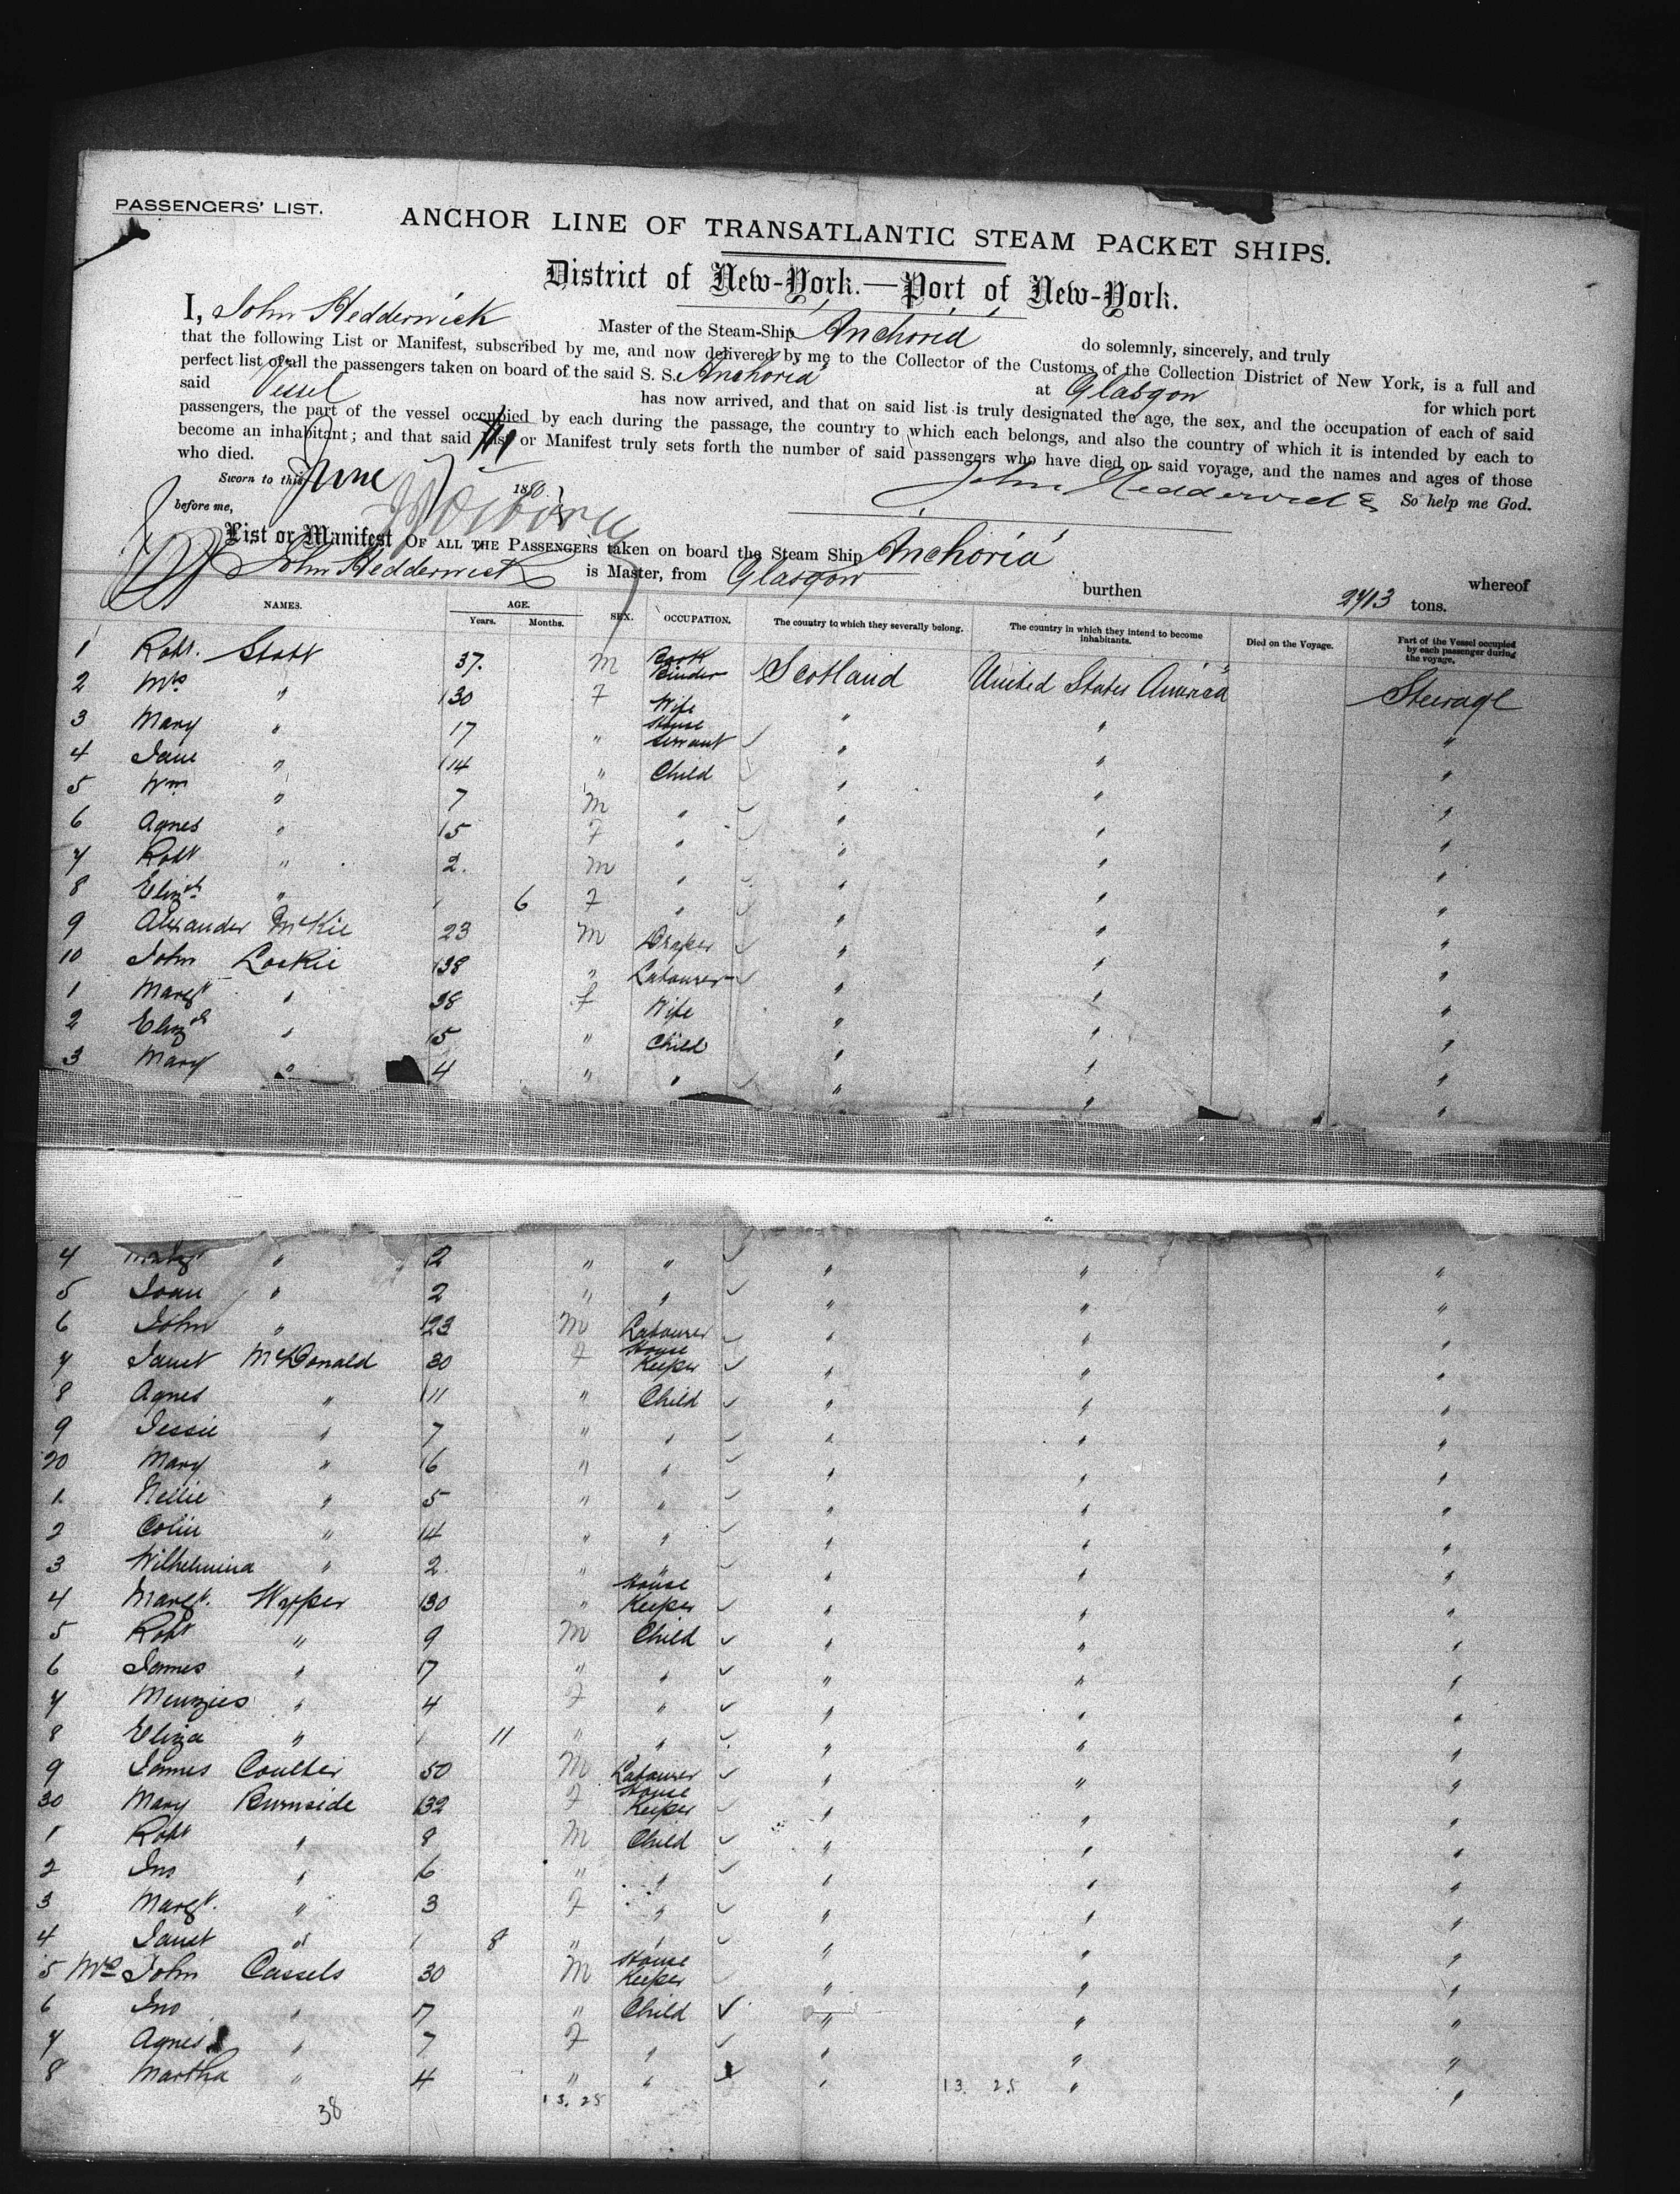 PASSENGERS' LIST.
ANCHOR LINE OF TRANSATLANTIC STEAM PACKET SHIPS.
District of New-York.—Port of New-York.
I, John Hedderwick Master of the Steam-Ship Anchoria do solemnly, sincerely, and truly
that the following List or Manifest, subscribed by me, and now delivered by me to the Collector of the Customs of the Collection District of New York, is a full and
perfect list of all the passengers taken on board of the said S. S. Anchoria at Glasgow for which port
said Vessel has now arrived, and that on said list is truly designated the age, the sex, and the occupation of each of said
passengers, the part of the vessel occupied by each during the passage, the country to which each belongs, and also the country of which it is intended by each to
become an inhabitant; and that said List or Manifest truly sets forth the number of said passengers who have died on said voyage, and the names and ages of those
who died. So help me God.
Sworn to this June 1880 John Hedderwick
before me,
List or Manifest OF ALL THE PASSENGERS taken on board the Steam Ship Anchoria whereof
John Hedderwick is Master, from Glasgow burthen 2713 tons.
NAMES. AGE. SEX. OCCUPATION. The country to which they severally belong. The country in which they intend to become inhabitants. Died on the Voyage. Part of the Vessel occupied by each passenger during the voyage.
Years. Months.
1 Robt. Stott 37. M Book Binder Scotland United States America Steerage
2 Mrs " 30 F Wife " " "
3 Mary " 17 " House Servant " " "
4 Jane " 14 " Child " " "
5 Wm " 7 M " " " "
6 Agnes " 5 F " " " "
7 Robt " 2. M " " " "
8 Elizth " 6 F " " " "
9 Alexander McKie 23 M Draper " " "
10 John Lockie 38 " Labourer " " "
1 Margt " 38 F Wife " " "
2 Elizth " 5 " Child " " "
3 Mary " 4 " " " " "
4 Margt " 2 " " " " "
5 Joan " 2 " " " " "
6 John " 23 M Labourer " " "
7 Janet McDonald 30 F House Keeper " " "
8 Agnes " 11 " Child " " "
9 Jessie " 7 " " " " "
20 Mary " 6 " " " " "
1 Nellie " 5 " " " " "
2 Colin " 4 " " " " "
3 Wilhelmina " 2 " " " " "
4 Margt. Wypper 30 " House Keeper " " "
5 Robt " 9 M Child " " "
6 James " 7 " " " " "
7 Menzies " 4 F " " " "
8 Eliza " 11 " " " " "
9 James Coulter 50 M Labourer " " "
30 Mary Burnside 32 F House Keeper " " "
1 Robt " 8 M Child " " "
2 Jno " 6 " " " " "
3 Margt. " 3 F " " " "
4 Janet " 8 " " " " "
5 Mrs John Cassels 30 M House Keeper " " "
6 Jno " 7 " Child " " "
7 Agnes " 7 F " " " "
8 Martha " 4 " " " " "
38 13. 25 13. 25